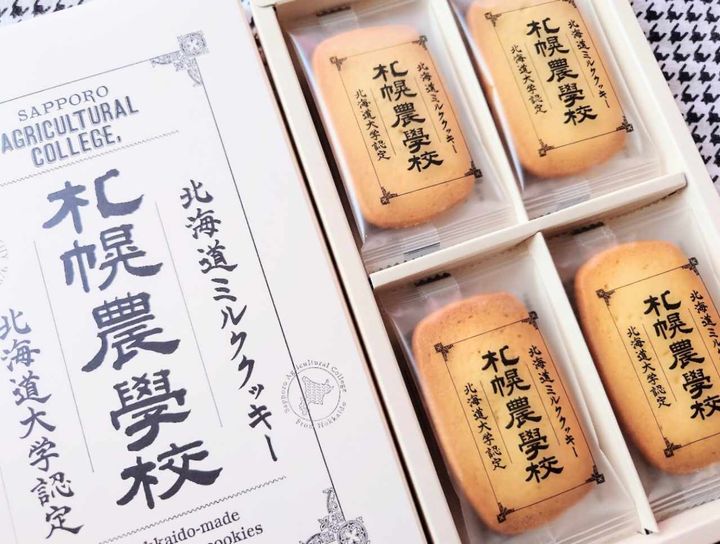 SAPPORO
AGRICULTURAL
COLLEGE,
北海道ミルククッキー
札幌農學校
北海道大学認定
Sapporo Agricultural College
From Hokkaido
kkaido-made
cookies
北海道ミルククッキー
札幌農學校
北海道大学認定
北海道ミルククッキー
札幌農學校
北海道大学認定
北海道ミルククッキー
札幌農學校
北海道大学認定
北海道ミルククッキー
札幌農學校
北海道大学認定